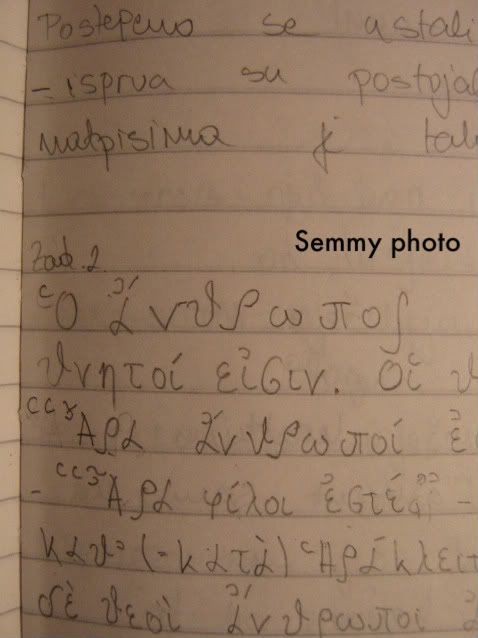 Postepeno se ustali
– isprva su postojal
natpisima
Semmy photo
Zad. 2.
Ὁ ἄνθρωπος
θνητοί εἰσιν. Οἱ θ
"Ἆρα ἄνθρωποί ἐ
- "Ἆρα φίλοι ἐστέ;" -
καθ' (= κατὰ) Ἡράκλειτ
δὲ θεοὶ ἄνθρωποι